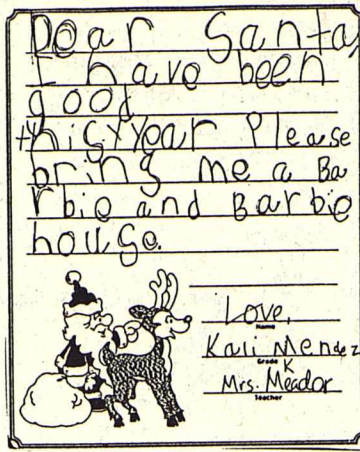 Dear Santa,
I have been
good
this year Please
bring me a Ba
rbie and Barbie
house.
Love,
Name
Kali Mendez
Grade K
Mrs. Meador
Teacher